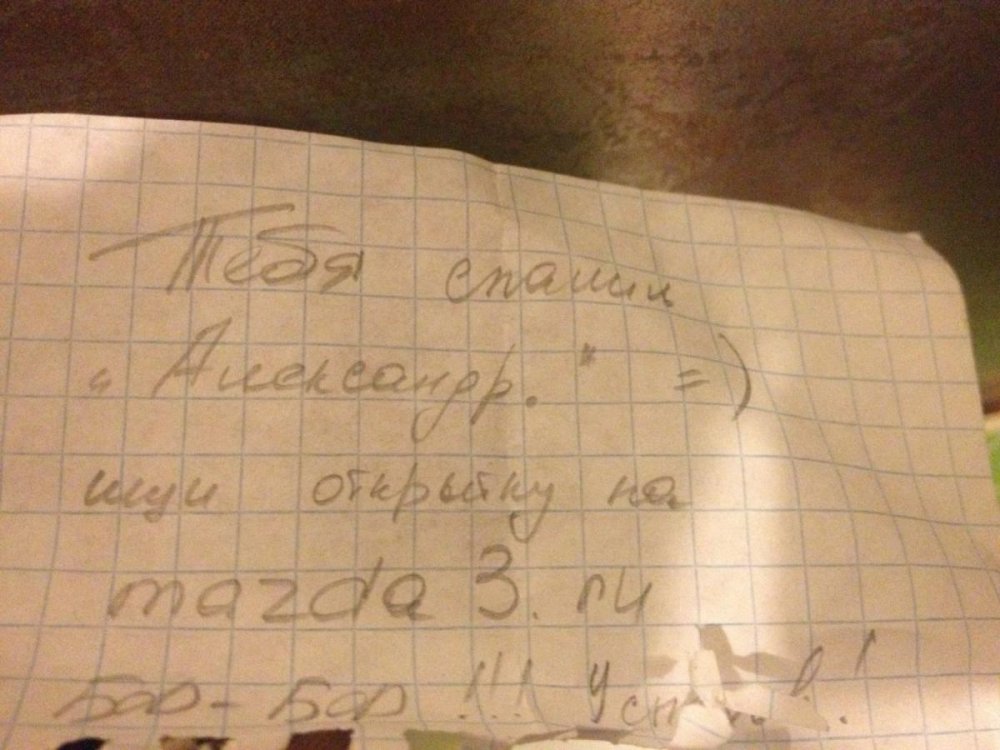 Тебя спалил
"Александр." =)
ищи открытку на
mazda 3. ru
Бор-Бор !!!